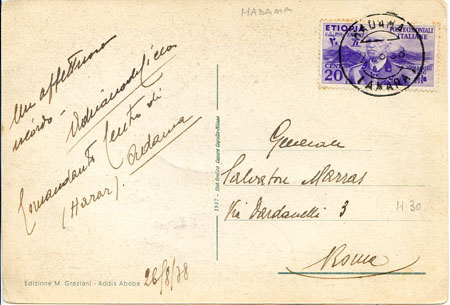 HADAMA
ETIOPIA
POSTE COLONIALI
ITALIANE
CENT
20
HADAMA
(AMARA)
Un affettuoso
ricordo -
Comandante Centro di
(Harar). Adama
Generale
Salvatore Marras
Via Dardanelli 3
Roma
H 30
Edizione M. Graziani - Addis Abeba
26/8/38